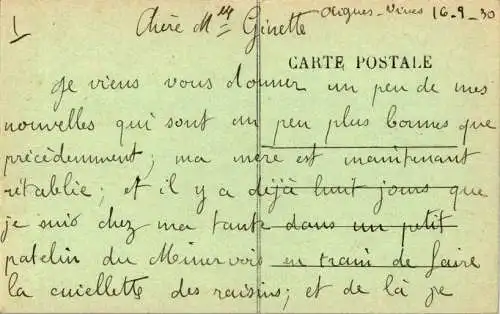 1
Aigues-Vives 16-9-30
Chère Mlle Ginette
CARTE POSTALE
Je viens vous donner un peu de mes
nouvelles qui sont un peu plus bonnes que
précèdemment; ma mère est maintenant
rétablie; et il y a déjà huit jours que
je suis chez ma tante dans un petit
patelin du Minervois en train de faire
la cuiellette des raisins; et de là je